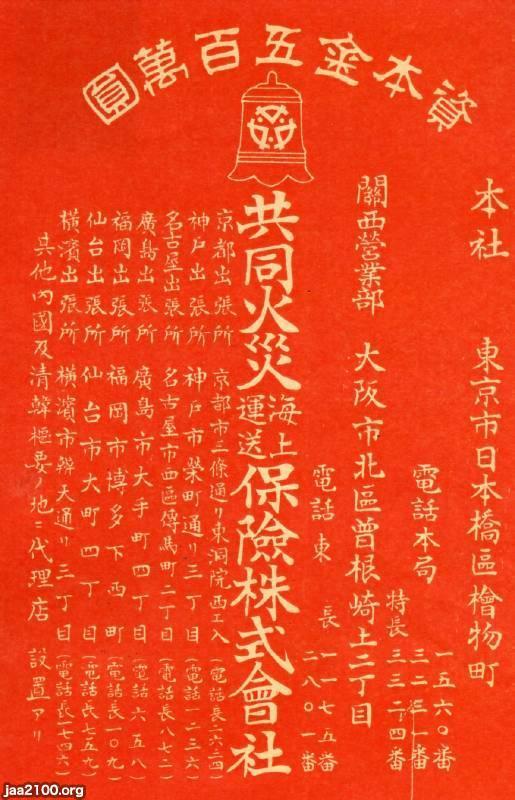 資本金五百萬圓
本社　東京市日本橋區檜物町
電話本局　一五六〇番
三二三一番
特長　三三二四番
關西營業部　大阪市北區曾根崎上二丁目
電話東　一一七五番
長　二八〇一番
共同火災海上運送保險株式會社
京都出張所　京都市三條通リ東洞院西エ入（電話長二六二四）
神戸出張所　神戸市榮町通リ三丁目（電話一二三六）
名古屋出張所　名古屋市西區傳馬町二丁目（電話長八七二）
廣島出張所　廣島市大手町四丁目（電話六五八）
福岡出張所　福岡市博多下西町（電話長一〇九）
仙台出張所　仙台市大町四丁目（電話長七五九）
横濱出張所　横濱市辨天通リ三丁目（電話長一七四六）
其他內國及清韓樞要ノ地ニ代理店設置アリ
jaa2100.org